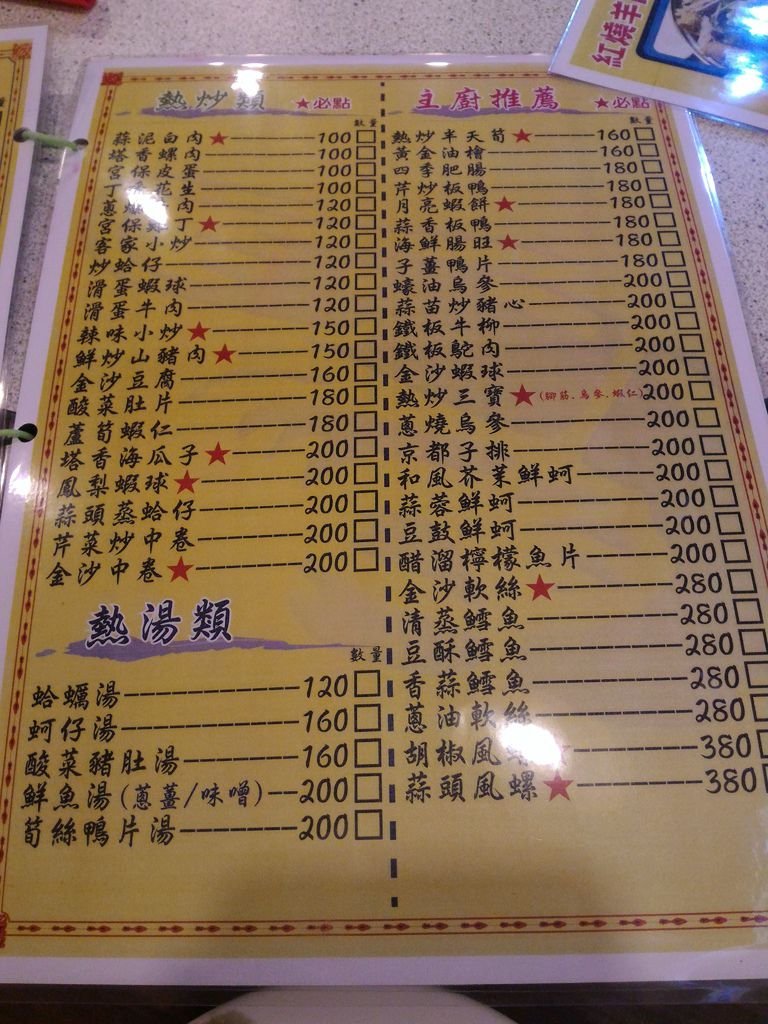 熱炒類 ★必點
數量
蒜泥白肉★ 100□
塔香螺肉 100□
宮保皮蛋 100□
丁香花生 100□
蔥爆 肉 120□
宮保雞丁★ 120□
客家小炒 120□
炒蛤仔 120□
滑蛋蝦球 120□
滑蛋牛肉 120□
辣味小炒★ 150□
鮮炒山豬肉★ 150□
金沙豆腐 160□
酸菜肚片 180□
蘆筍蝦仁 180□
塔香海瓜子★ 200□
鳳梨蝦球★ 200□
蒜頭蒸蛤仔 200□
芹菜炒中卷 200□
金沙中卷★ 200□
熱湯類
數量
蛤蠣湯 120□
蚵仔湯 160□
酸菜豬肚湯 160□
鮮魚湯(蔥薑/味噌) 200□
筍絲鴨片湯 200□
主廚推薦 ★必點
數量
熱炒半天筍★ 160□
黃金油檜 160□
四季肥腸 180□
芹炒板鴨 180□
月亮蝦餅★ 180□
蒜香板鴨 180□
海鮮腸旺★ 180□
子薑鴨片 180□
蠔油烏參 200□
蒜苗炒豬心 200□
鐵板牛柳 200□
鐵板鴕肉 200□
金沙蝦球 200□
熱炒三寶★(腳筋、烏參、蝦仁) 200□
蔥燒烏參 200□
京都子排 200□
和風芥茉鮮蚵 200□
蒜蓉鮮蚵 200□
豆鼓鮮蚵 200□
醋溜檸檬魚片 200□
金沙軟絲★ 280□
清蒸鱈魚 280□
豆酥鱈魚 280□
香蒜鱈魚 280□
蔥油軟絲 280□
胡椒風螺★ 380□
蒜頭風螺★ 380□
紅燒羊